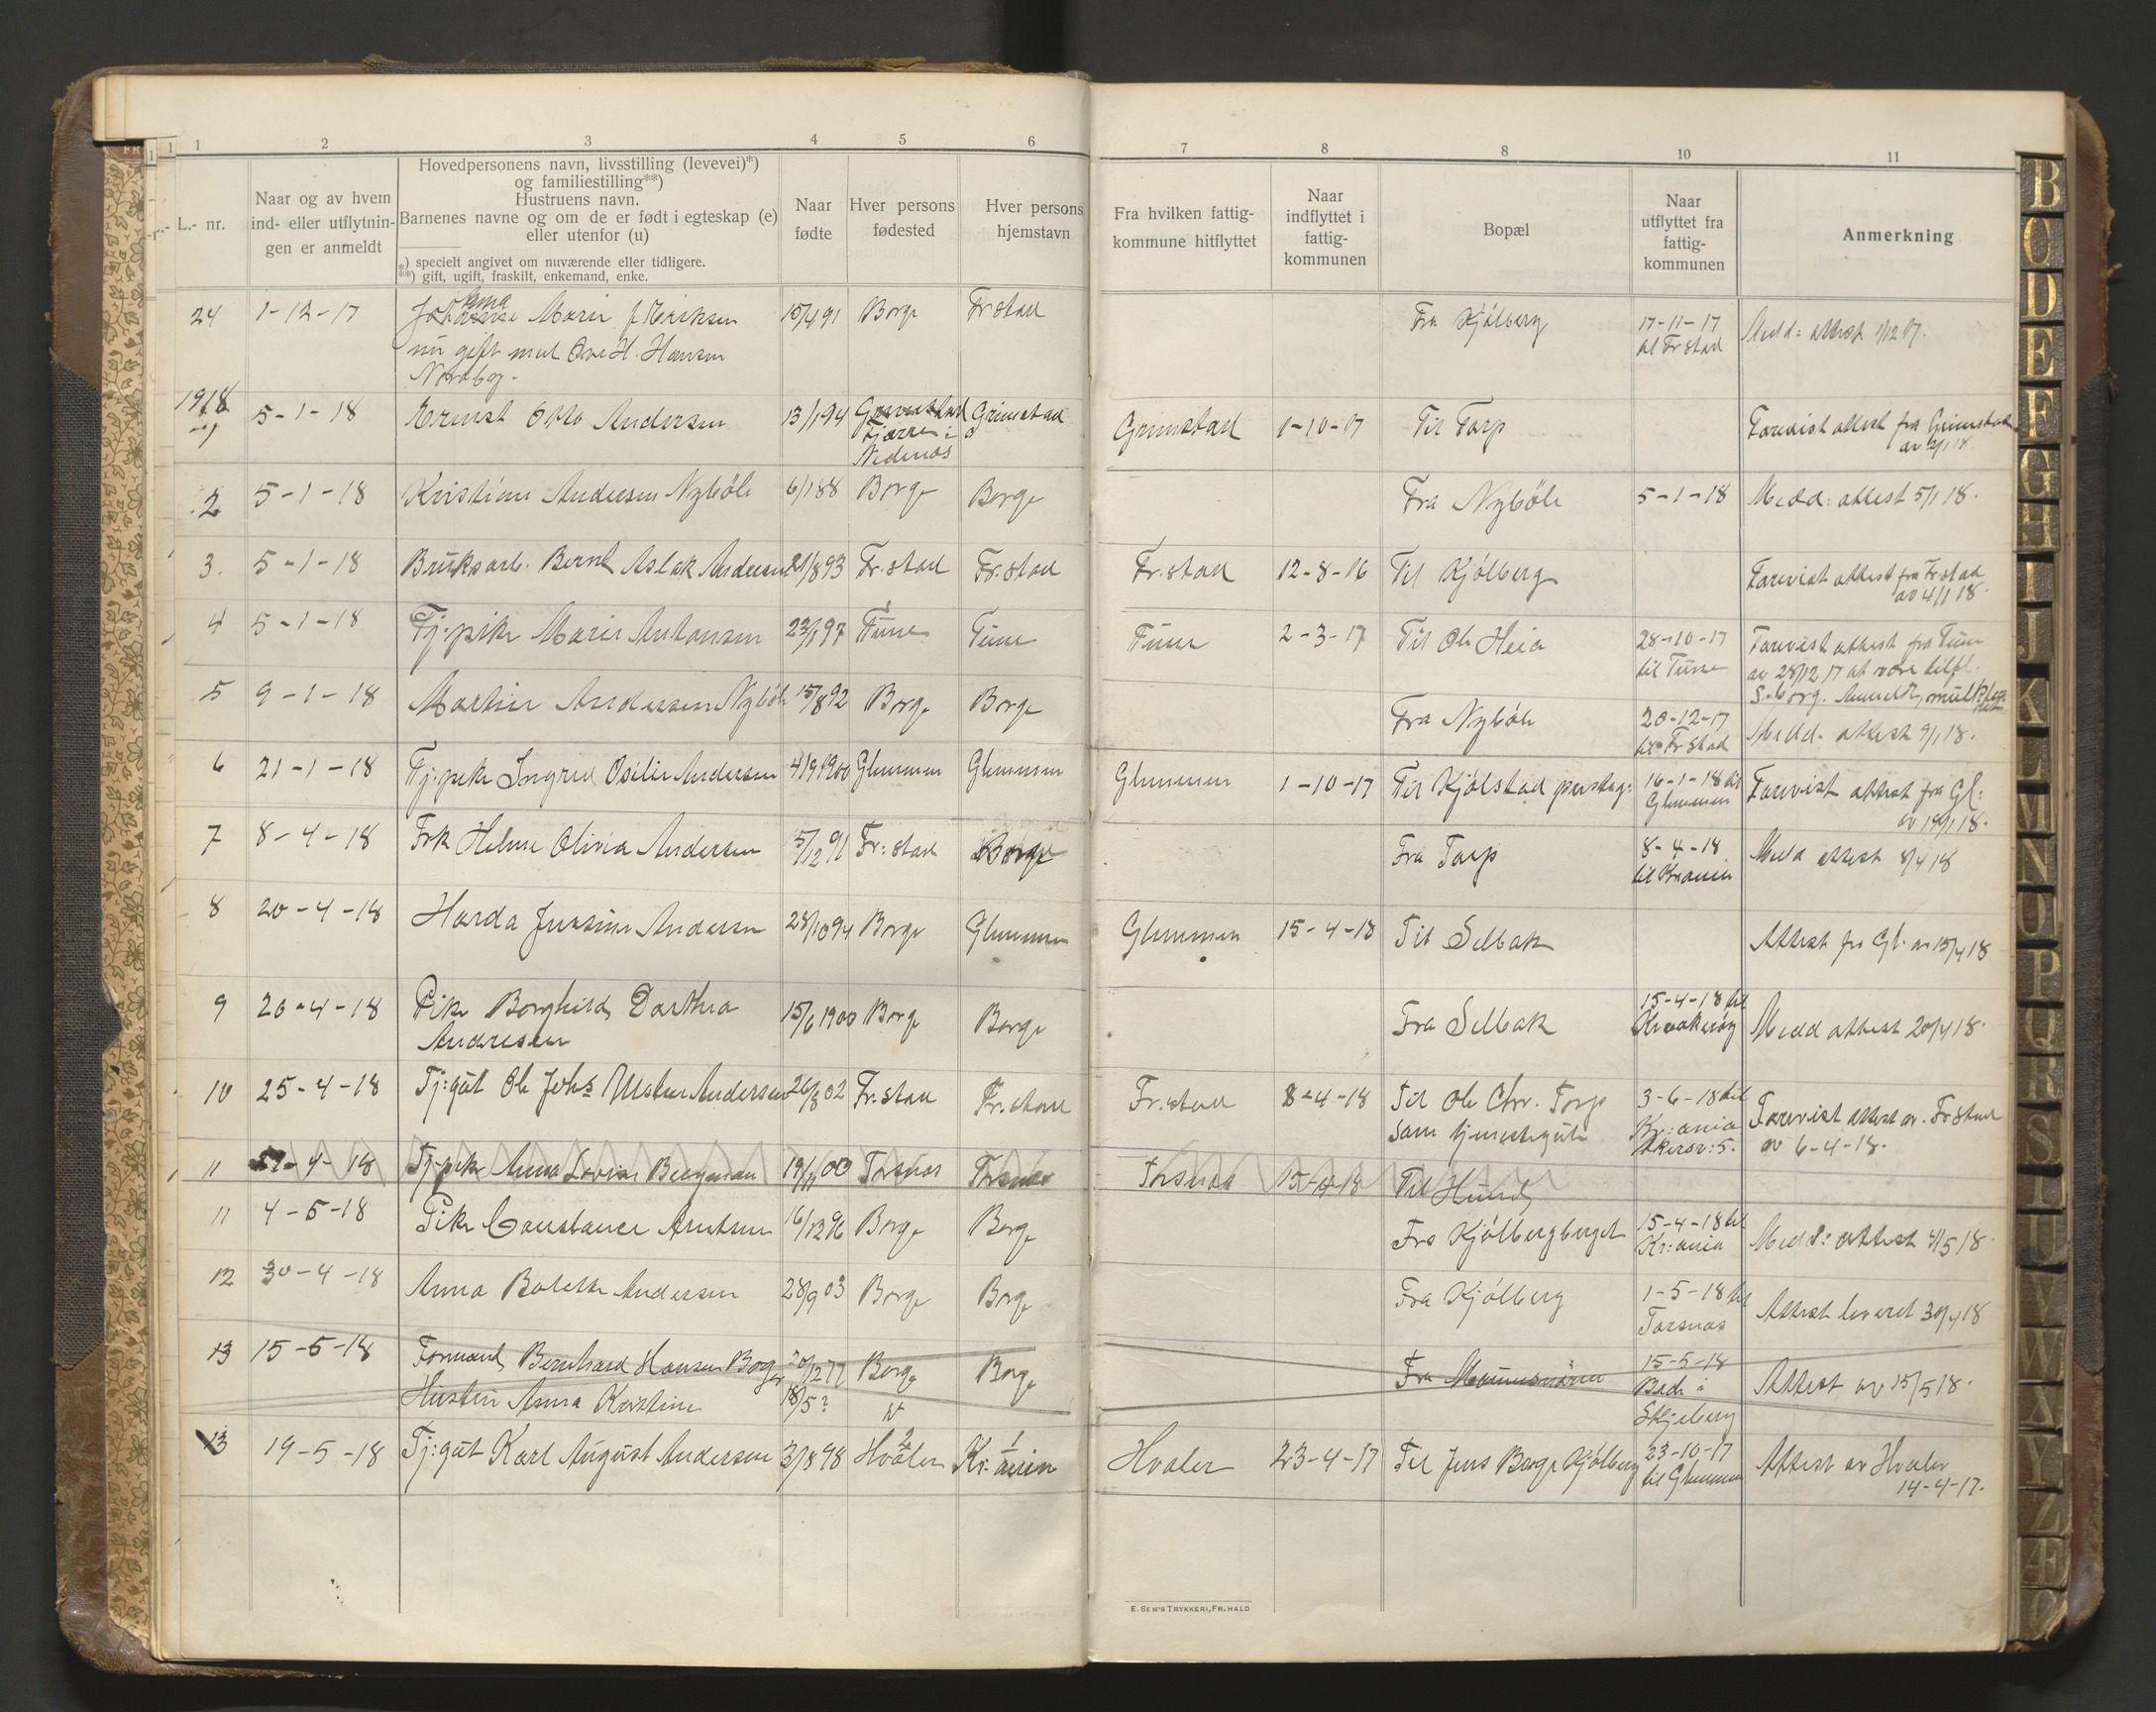 1 2 3 4 5 6 7 8 8 10 11
L.- nr.
Naar og av hvem
ind- eller utflytnin-
gen er anmeldt
Hovedpersonens navn, livsstilling (levevei)*)
og familiestilling**)
Hustruens navn.
Barnenes navne og om de er født i egteskap (e)
eller utenfor (u)
*) specielt angivet om nuværende eller tidligere.
**) gift, ugift, fraskilt, enkemand, enke.
Naar
fødte
Hver persons
fødested
Hver persons
hjemstavn
Fra hvilken fattig-
kommune hitflyttet
Naar
indflyttet i
fattig-
kommunen
Bopæl
Naar
utflyttet fra
fattig-
kommunen
Anmerkning
24 1-12-17 Marie Eriksen 15/4 91 Borge Fr.stad Fra Kjölberg 17-11-17 Medd: attest 1/12 17.
nu gift med Ove H. Hansen til Fr.stad
Nordbg.
1918
1 5-1-18 Ernst Otto Andersen 13/1 94 Grimstad Grimstad 1-10-17 Til Torp Forevist attest fra Grimstad
Fjære i
Nedenæs
2 5-1-18 Kristian Andersen Nyböle 6/1 88 Borge Borge Fra Nyböle 5-1-18 Medd: attest 5/1 18.
3. 5-1-18 Bruksarb. Bernt Aslak Andersen 21/8 93 Fr.stad Fr.stad Fr.stad 12-8-16 Til Kjölberg Forevist attest fra Fr.stad
av 4/1 18.
4 5-1-18 Tj:pike Marie Antonsen 23/1 97 Tune Tune Tune 2-3-17 Til Ole Heia 28-10-17 Forevist attest fra Tune
til Tune av 28/12 17 at være tilfl.
S-borg.
5 9-1-18 Martin Andersen Nyböle 15/8 92 Borge Borge Fra Nyböle 20-12-17 Medd. attest 9/1 18.
til Fr.stad
6 21-1-18 Tj:pike Ingrid Osilie Andersen 4/9 1900 Glemmen Glemmen Glemmen 1-10-17 Til Kjölstad presteg: 16-1-18 til Forevist attest fra Gl:
Glemmen
7 8-4-18 Frk Helene Olivia Andersen 5/12 91 Fr:stad Borge Fra Torp 8-4-18 Medd attest 8/4 18
til Kr.ania
8 20-4-18 Harda Jensine Andersen 28/10 94 Borge Glemmen Glemmen 15-4-18 Til Selbak Attest fra Gl. av 15/4 18
9 20-4-18 Pike Borghild Dorthea 15/6 1900 Borge Borge Fra Selbak 15-4-18 til Medd attest 20/4 18.
Andresen Kraakeröy
10 25-4-18 Tj:gut Ole Johs Andersen 26/8 02 Fr.stad Fr.stad Fr.stad 8-4-18 Til Ole Chr. Torp 3-6-18 til Forevist attest av Fr.stad
som tjenestegut Kr:ania av 6-4-18.
Akersv: 5.
11 4-18 Tj-pike Anna Lovise Bergman 19/11 00 Torsnæs Torsnæs Torsnæs 15-4-18 Til Hunn
11 4-5-18 Pike Constance Arntsen 16/12 96 Borge Borge Fra Kjölbergberget 15-4-18 til Medd: attest 4/5 18.
Kr:ania
12 30-4-18 Anna Bolette Andersen 28/9 03 Borge Borge Fra Kjölberg 1-5-18 til Attest leveret 30/4 18
Torsnæs
13 15-5-18 Formand Bernhard Hansen Borge 20/12 77 Borge Borge Fra 15-5-18 Attest av 15/5 18.
Hustru Anna Kristine 18/5 ? Bede i
Skjeberg
13 19-5-18 Tj:gut Karl August Andersen 3/8 98 Hvaler Kr:ania Hvaler 23-4-17 Til Jens Borge Kjölberg 23-10-17 Attest av Hvaler
til Glemmen 14-4-17.
E. SEM'S TRYKKERI, FR.HALD
B
C
D
E
F
G
H
I
J
K
L
M
N
O
P
Q
R
S
T
U
V
W
X
Y
Z
Æ
Ø